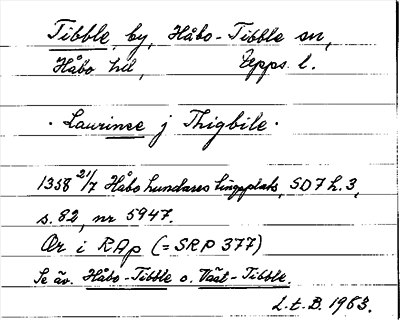 Tibble, by, Håbo-Tibble sn,
Håbo hd, Upps. l.
· Laurinse j Thigbile ·
1358 21/7 Håbo hundares tingsplats, SD 7 h. 3,
s. 82, nr 5947.
Or i RAp (= SRP 377)
Se äv. Håbo-Tibble o. Väst-Tibble.
L.t.B. 1963.